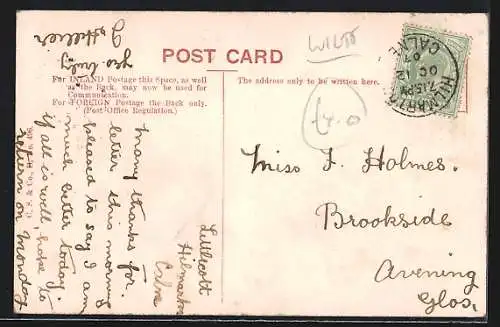 POST CARD
For INLAND Postage this Space, as well
as the Back, may now be used for
Communication.
For FOREIGN Postage the Back only.
(Post Office Regulation.)
The address only to be written here.
WILTS
£4.0
HILMARTON
CALNE
7.15PM
OC 12
07
Miss F. Holmes.
Brookside
Avening
Glos.
Littlecott
Hilmarton
Calne
many thanks for
letter this morning
pleased to say I am
much better today.
if all is well, hope to
return on Monday
yrs. truly
J Hillier